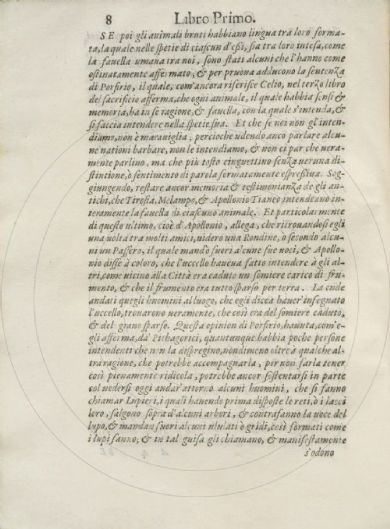 8 Libro Primo.
SE poi gli animali bruti habbiano lingua tra loro forma-
ta, la quale nelle spetie di ciascun d'essi, sia tra loro intesa, come
la fauella umana tra noi, sono stati alcuni che l'hanno come
ostinatamente affermato, & per pruoua adducono la sentenza
di Porfirio, il quale, com'ancora riferisse Celio, nel terzo libro
del sacrificio afferma, che ogni animale, il quale habbia sensi &
memoria, ha in se ragione, & fauella, con la quale s'intenda, &
si faccia intendere nella spetie sua. Et che se noi non gl'inten-
diamo, non è marauiglia, percioche udendo anco parlare alcu-
ne nationi barbare, non le intendiamo, & non ci par che uera-
mente parlino, ma che più tosto cinguettino senza ueruna di-
stintione, ò sentimento di parola formatamente espressiua. Sog-
giungendo, restare ancor memoria & testimonianza de gli an-
tichi, che Tiresia, Melampo, & Apollonio Tianeo intendeano in-
teramente la fauella di ciascuno animale. Et particolarmente
di questo ultimo, cioè d'Apollonio, allega, che ritrouandosi egli
una uolta tra molti amici, uidero una Rondine, ò secondo alcu-
ni un Passero, il quale mandò fuori alcune sue uoci, & Apollo-
nio disse à coloro, che l'uccello haueua fatto intendere à gli al-
tri, come uicino alla Città era caduto un somiere carico di fru-
mento, & che il frumento era tutto sparso per terra. La onde
andati quegli huomini al luogo, che egli dicea hauer'insegnato
l'uccello, trouarono ueramente, che così era del somiere caduto,
& del grano sparso. Questa opinion di Porfirio, hauuta, com'e-
gli afferma, da' Pithagorici, quantunque habbia poche persone
intendenti che non la dispregino, nondimeno oltre à qualche al-
tra ragione, che potrebbe accompagnarla, per non farla tener
così pienamente ridicola, potrebbe ancor sostentarsi in parte
col uedersi oggi andar'attorno alcuni huomini, che si fanno
chiamar Lupieri, i quali hauendo prima disposte le reti, ò i lacci
loro, salgono sopra d'alcuni arbori, & contrafanno la uoce del
lupo, & mandan fuori alcuni ululati ò gridi, così formati come
i lupi fanno, & in tal guisa gli chiamano, & manifestamente
s'odono